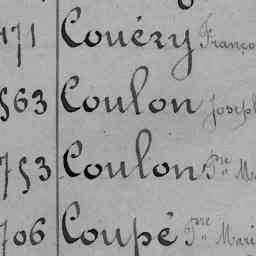 471 Couéry Franço
563 Coulon Joseph
753 Coulon Pre Ma
706 Coupé Pre Mari